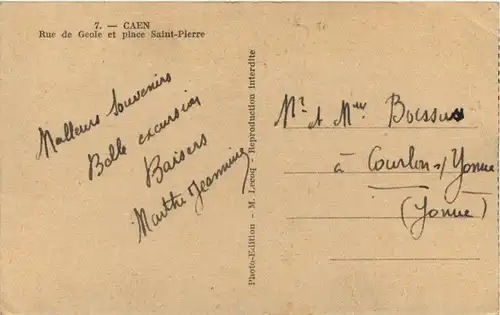 7. — CAEN
Rue de Geole et place Saint-Pierre
Meilleurs Souvenirs
Belle excursion
Baisers
Marthe Jeannine
Photo-Edition - M. Lecoq - Reproduction Interdite
Mr et Mme
à Courlon s/ Yonne
(Yonne)